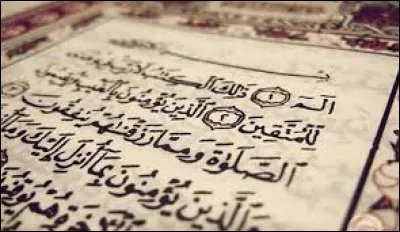 الٓمٓ ١ ذَٰلِكَ الْكِتَابُ لَا رَيْبَ
لِلْمُتَّقِينَ ٢ الَّذِينَ يُؤْمِنُونَ بِالْغَيْبِ
الصَّلَوٰةَ وَمِمَّا رَزَقْنَٰهُمْ يُنفِقُونَ
وَالَّذِينَ يُؤْمِنُونَ بِمَا أُنزِلَ إِلَيْكَ وَمَا